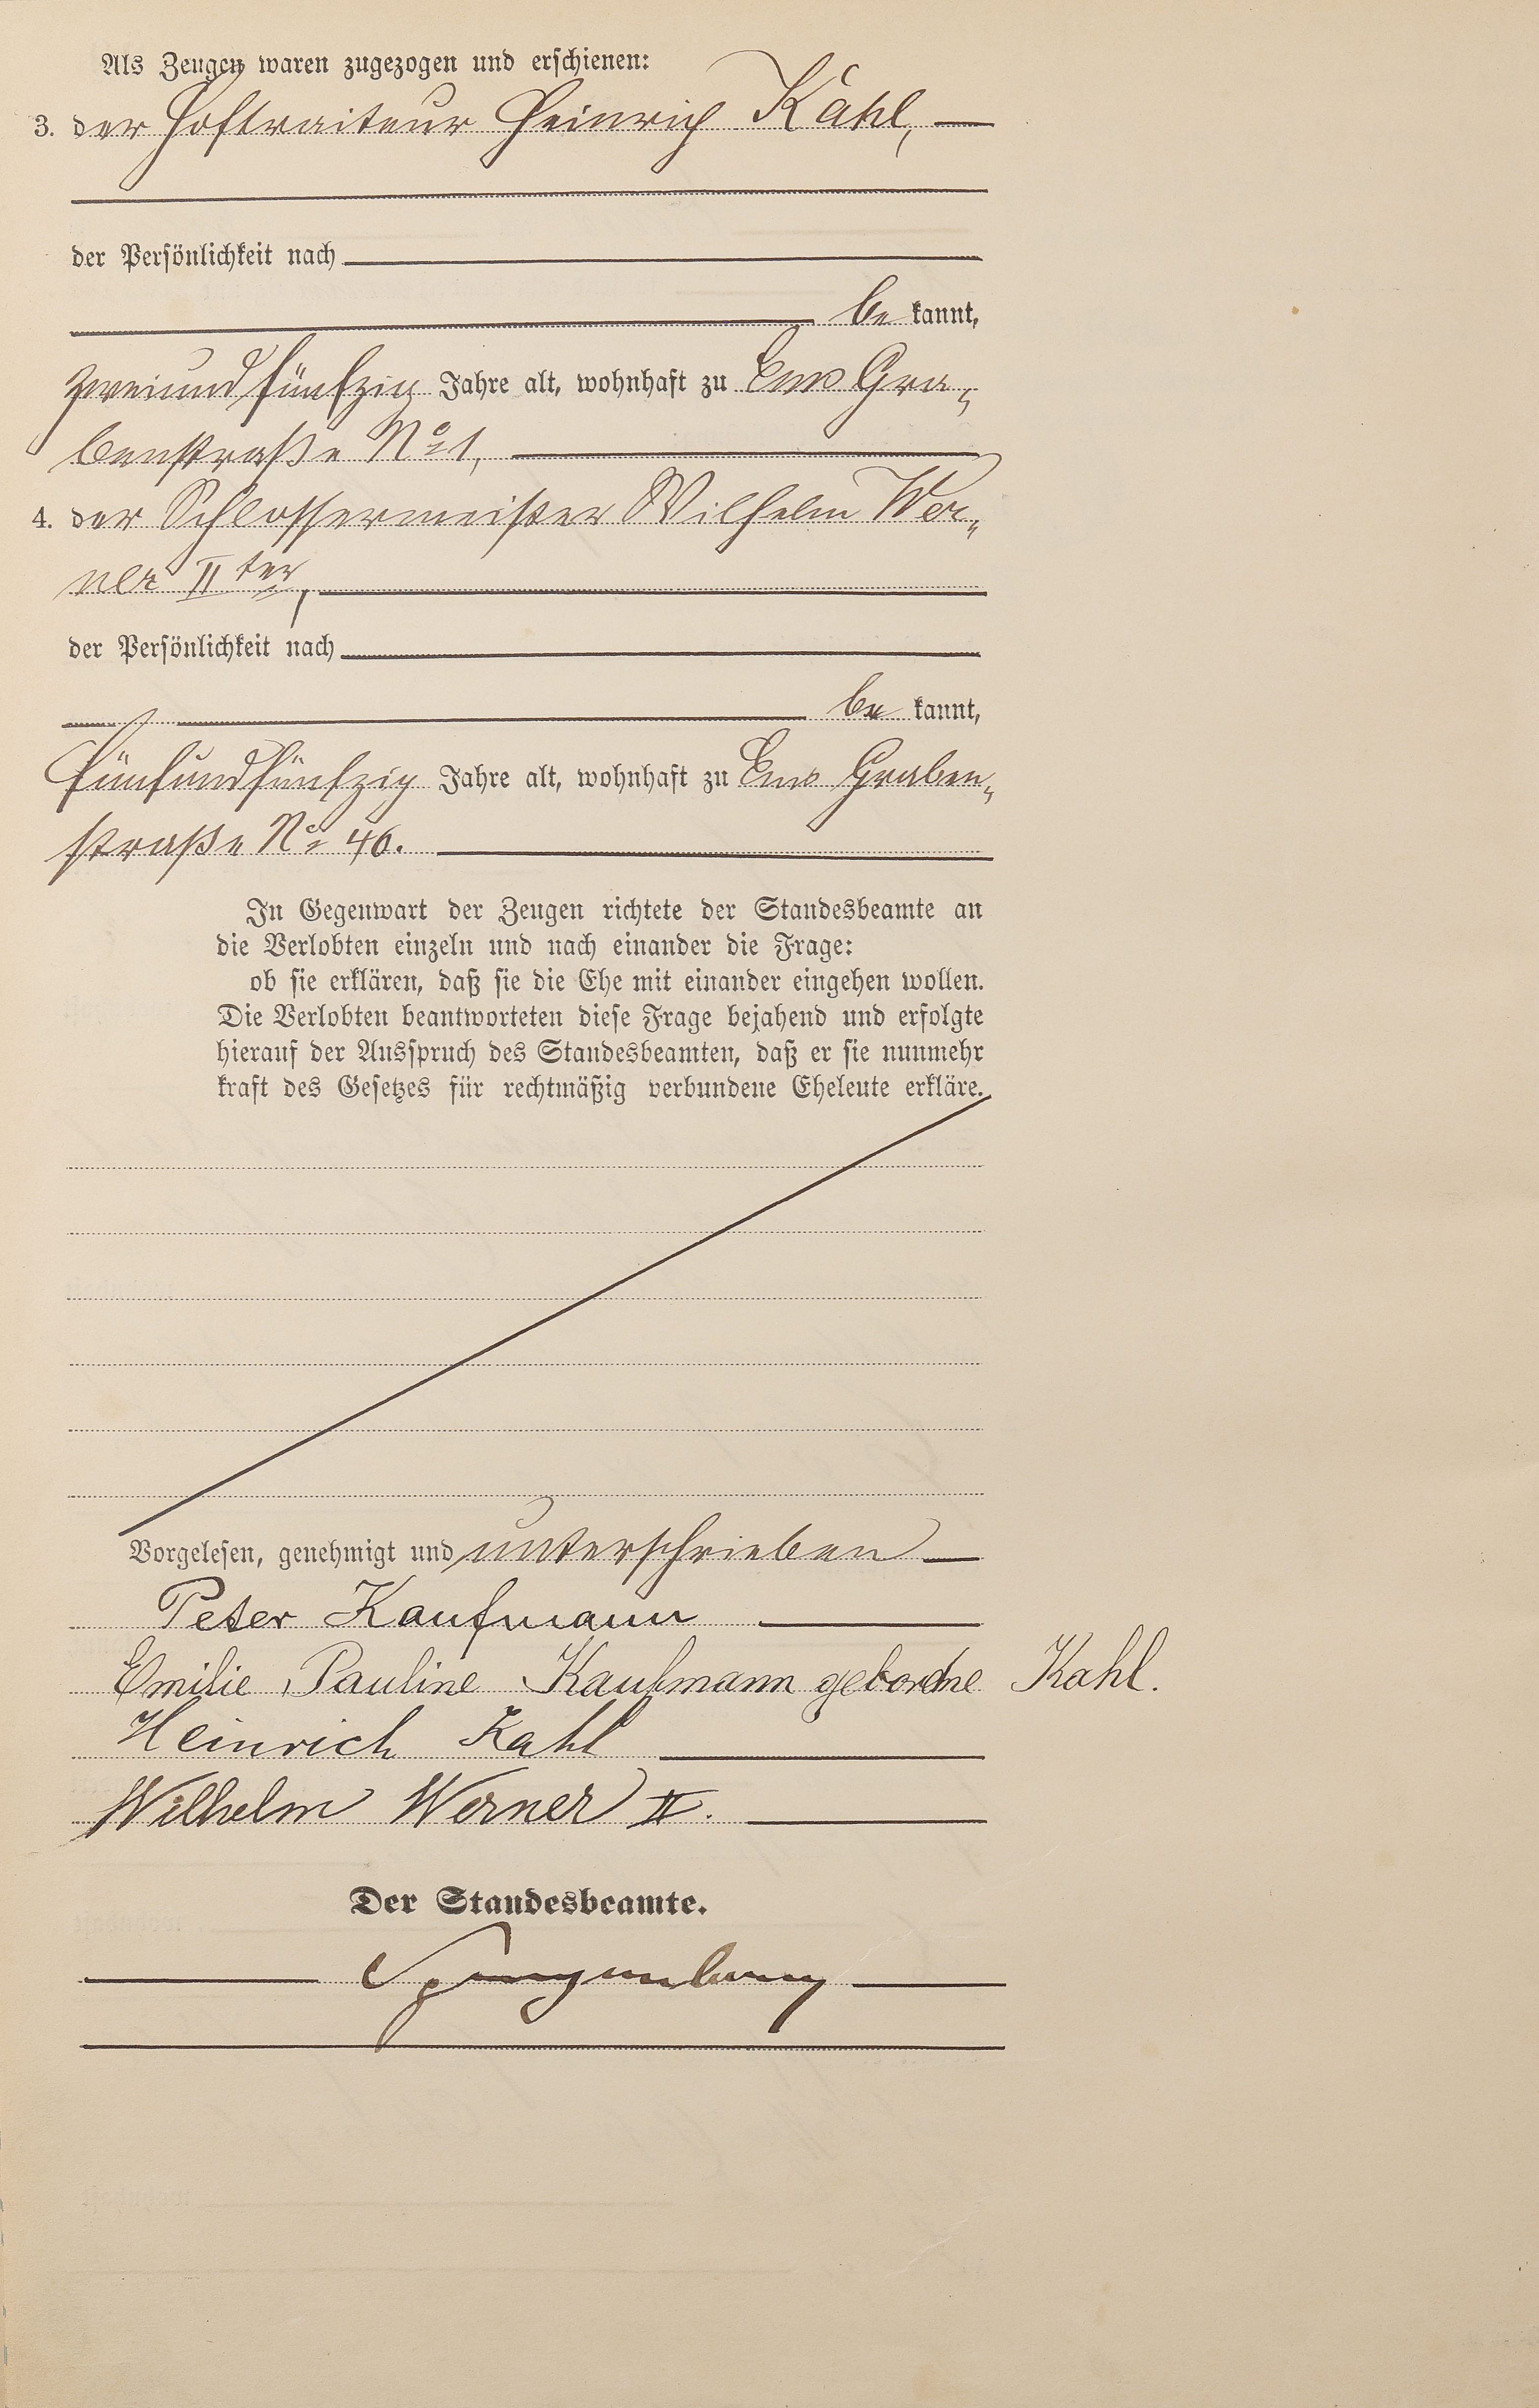 Als Zeugen waren zugezogen und erschienen:
3. der Hoftraiteur Heinrich Kahl, —
der Persönlichkeit nach
be kannt,
zweiundfünfzig Jahre alt, wohnhaft zu Ems Gra„
benstraße No 1,
4. der Schlossermeister Wilhelm Wer„
ner IIter,
der Persönlichkeit nach
be kannt,
fünfundfünfzig Jahre alt, wohnhaft zu Ems Graben„
straße No 46.
In Gegenwart der Zeugen richtete der Standesbeamte an
die Verlobten einzeln und nach einander die Frage:
ob sie erklären, daß sie die Ehe mit einander eingehen wollen.
Die Verlobten beantworteten diese Frage bejahend und erfolgte
hierauf der Ausspruch des Standesbeamten, daß er sie nunmehr
kraft des Gesetzes für rechtmäßig verbundene Eheleute erkläre.
Vorgelesen, genehmigt und unterschrieben —
Peter Kaufmann
Emilie Pauline Kaufmann geborne Kahl.
Heinrich Kahl
Wilhelm Werner II.
Der Standesbeamte.
Spangenberg